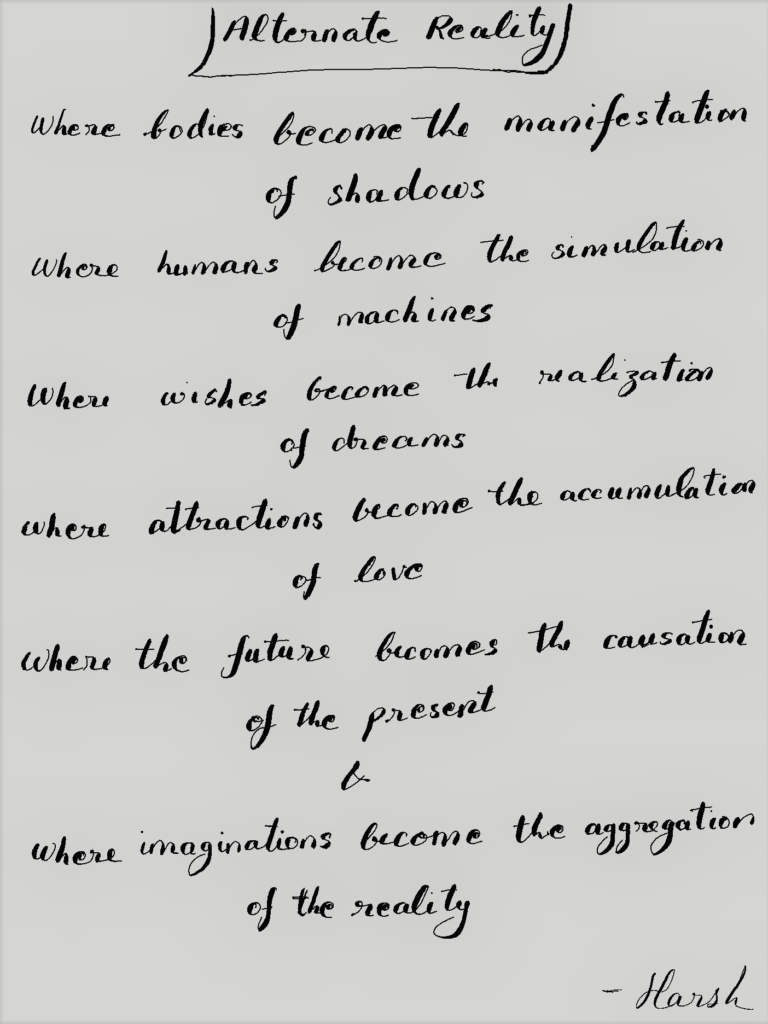 Alternate Reality
Where bodies become the manifestation
of shadows
Where humans become the simulation
of machines
Where wishes become the realization
of dreams
Where attractions become the accumulation
of love
Where the future becomes the causation
of the present
&
Where imaginations become the aggregation
of the reality
- Harsh